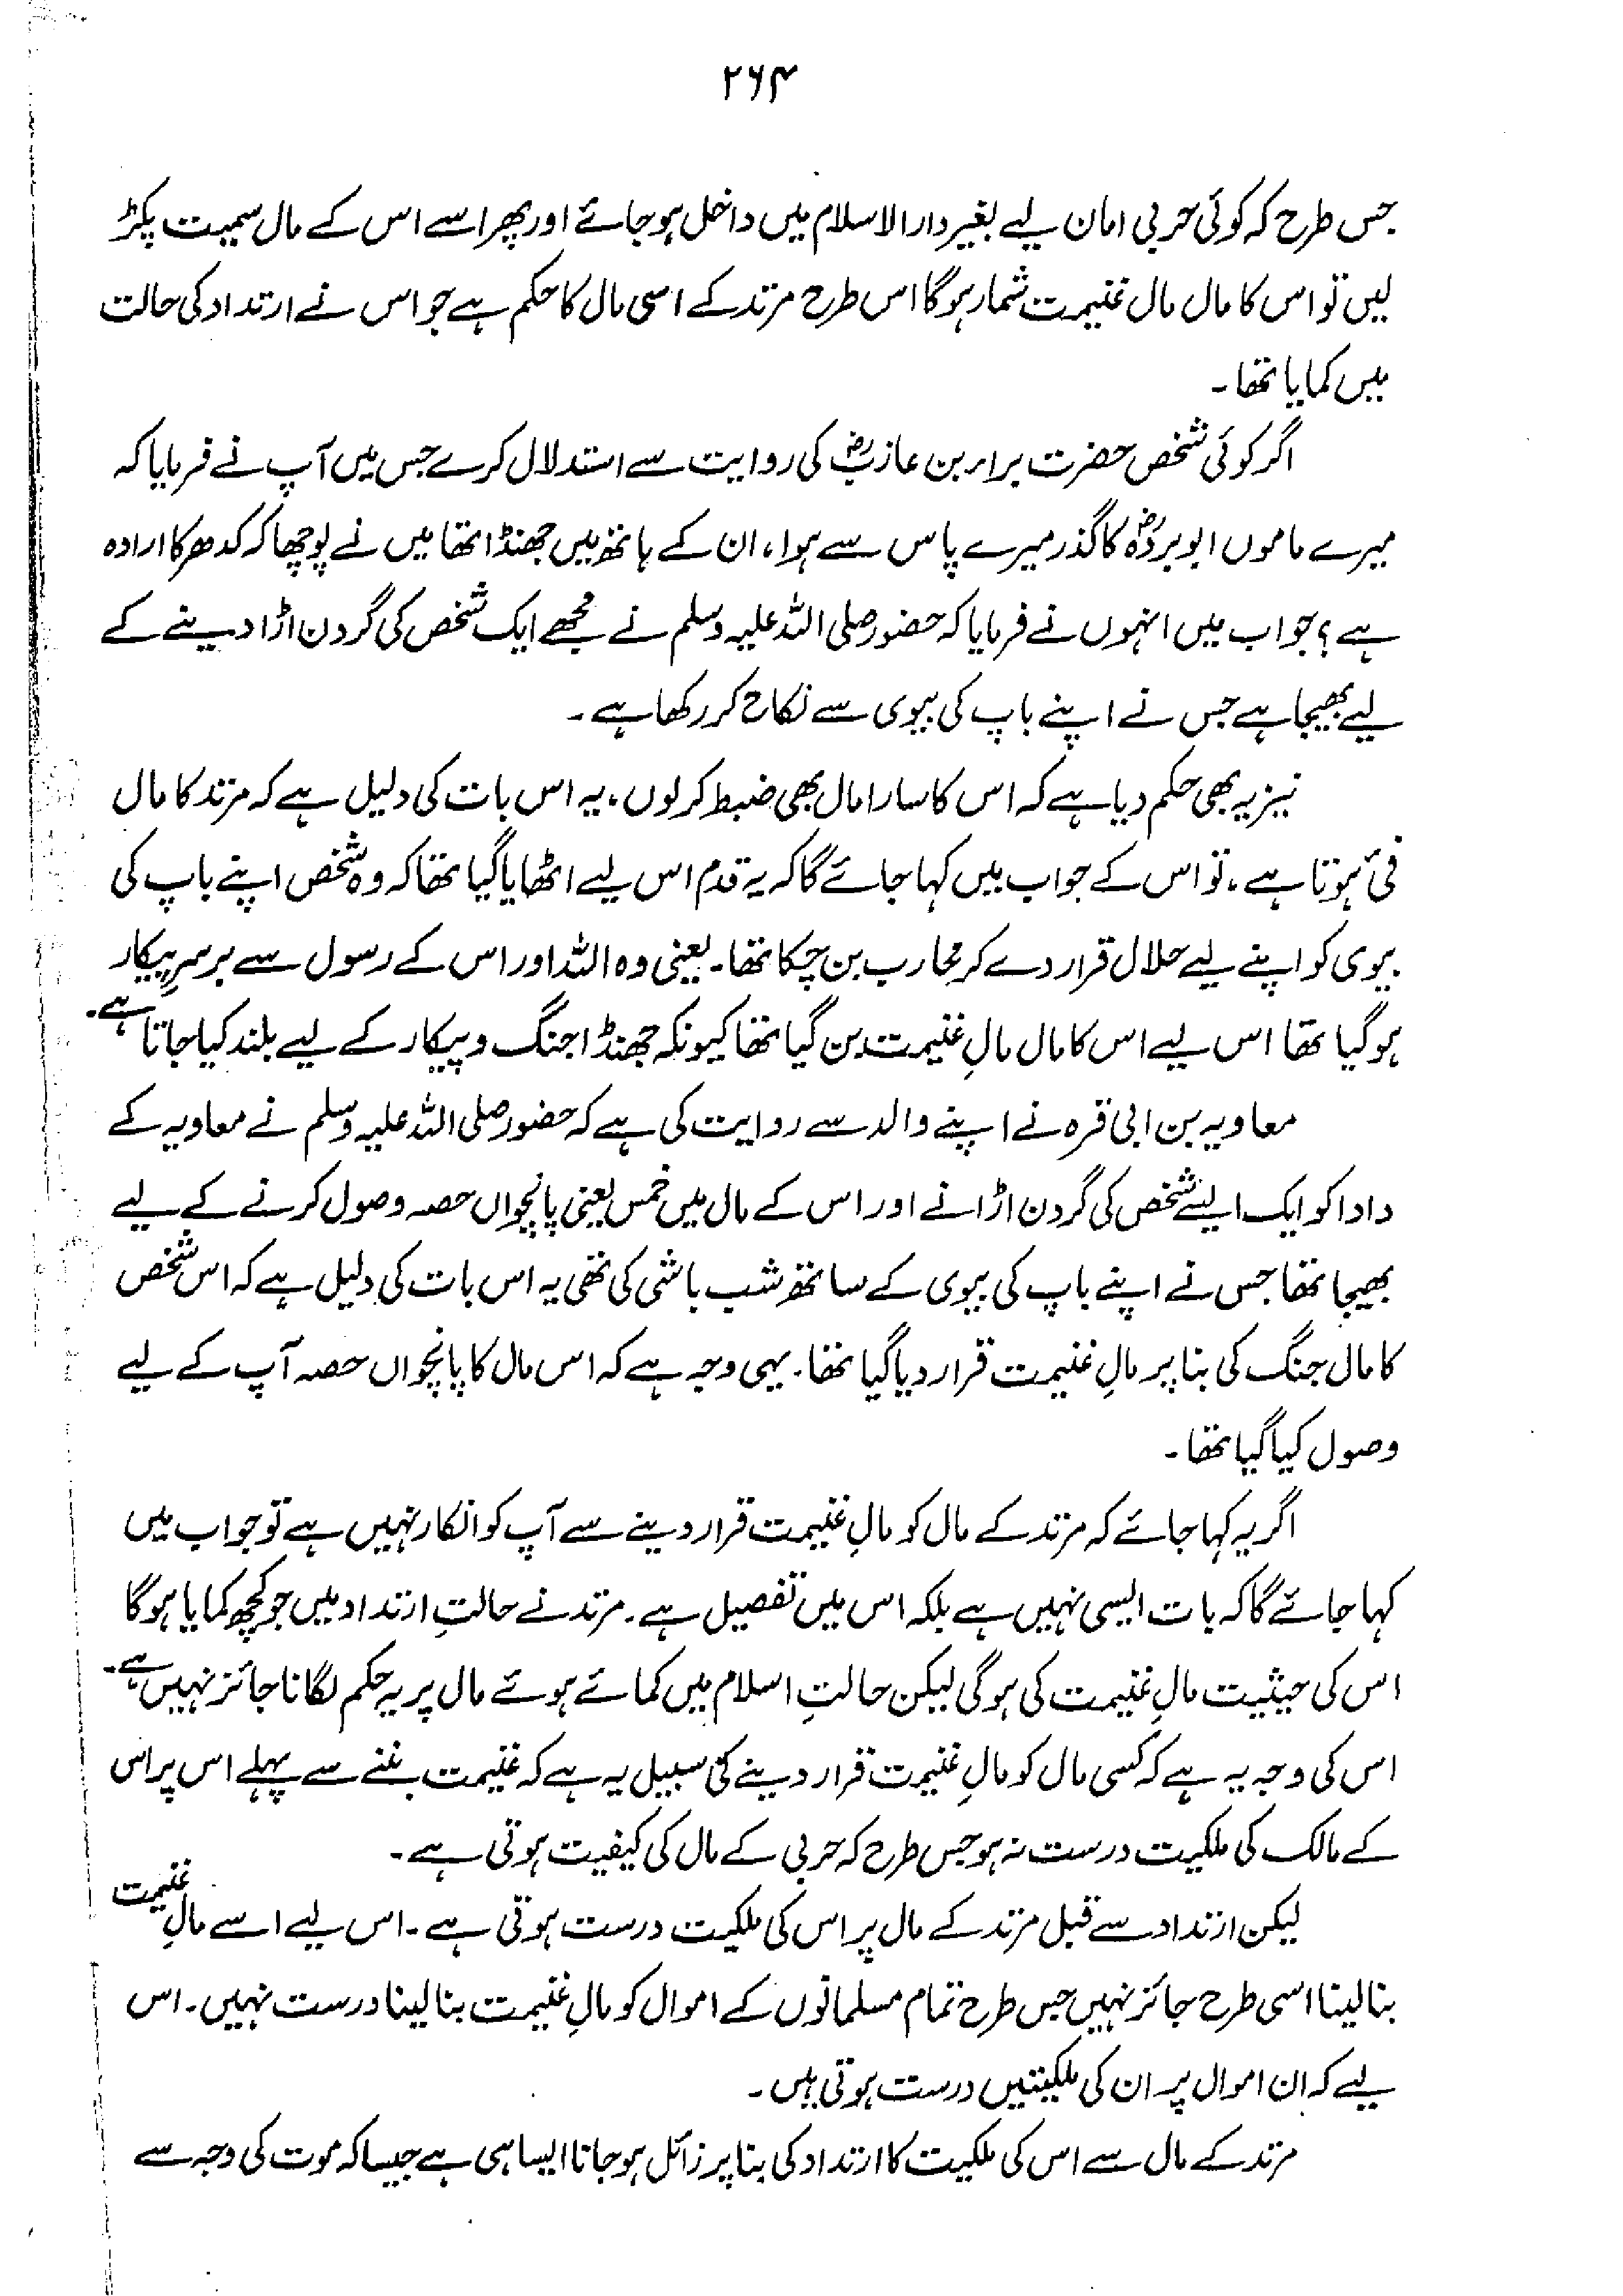 ۲۶۴
جس طرح کہ کوئی حربی امان لیے بغیر دارالاسلام میں داخل ہو جائے اور پھر اسے اس کے مال سمیت پکڑ
لیں تو اس کا مال مال غنیمت شمار ہوگا اس طرح مرتد کے اسی مال کا حکم ہے جو اس نے ارتداد کی حالت
میں کمایا تھا۔
اگر کوئی شخص حضرت براء بن عازبؓ کی روایت سے استدلال کرے جس میں آپ نے فرمایا کہ
میرے ماموں ابو بردہؓ کا گذر میرے پاس سے ہوا، ان کے ہاتھ میں جھنڈا تھا میں نے پوچھا کہ کدھر کا ارادہ
ہے؟ جواب میں انہوں نے فرمایا کہ حضور صلی اللہ علیہ وسلم نے مجھے ایک شخص کی گردن اڑا دینے کے
لیے بھیجا ہے جس نے اپنے باپ کی بیوی سے نکاح کر رکھا ہے۔
نیز یہ بھی حکم دیا ہے کہ اس کا سارا مال بھی ضبط کر لوں، یہ اس بات کی دلیل ہے کہ مرتد کا مال
فئ ہوتا ہے، تو اس کے جواب میں کہا جائے گا کہ یہ قدم اس لیے اٹھایا گیا تھا کہ وہ شخص اپنے باپ کی
بیوی کو اپنے لیے حلال قرار دے کر محارب بن چکا تھا۔ یعنی وہ اللہ اور اس کے رسول سے برسرِ پیکار
ہو گیا تھا اس لیے اس کا مال مالِ غنیمت بن گیا تھا کیونکہ جھنڈا جنگ و پیکار کے لیے بلند کیا جاتا ہے۔
معاویہ بن ابی قرہ نے اپنے والد سے روایت کی ہے کہ حضور صلی اللہ علیہ وسلم نے معاویہ کے
دادا کو ایک ایسے شخص کی گردن اڑانے اور اس کے مال میں خمس یعنی پانچواں حصہ وصول کرنے کے لیے
بھیجا تھا جس نے اپنے باپ کی بیوی کے ساتھ شب باشی کی تھی یہ اس بات کی دلیل ہے کہ اس شخص
کا مال جنگ کی بنا پر مالِ غنیمت قرار دیا گیا تھا۔ یہی وجہ ہے کہ اس مال کا پانچواں حصہ آپ کے لیے
وصول کیا گیا تھا۔
اگر یہ کہا جائے کہ مرتد کے مال کو مالِ غنیمت قرار دینے سے آپ کو انکار نہیں ہے تو جواب میں
کہا جائے گا کہ بات ایسی نہیں ہے بلکہ اس میں تفصیل ہے۔ مرتد نے حالتِ ارتداد میں جو کچھ کمایا ہوگا
اس کی حیثیت مالِ غنیمت کی ہوگی لیکن حالتِ اسلام میں کمائے ہوئے مال پر یہ حکم لگانا جائز نہیں ہے۔
اس کی وجہ یہ ہے کہ کسی مال کو مالِ غنیمت قرار دینے کی سبیل یہ ہے کہ غنیمت بننے سے پہلے اس پر اس
کے مالک کی ملکیت درست نہ ہو جس طرح کہ حربی کے مال کی کیفیت ہوتی ہے۔
لیکن ارتداد سے قبل مرتد کے مال پر اس کی ملکیت درست ہوتی ہے۔ اس لیے اسے مالِ غنیمت
بنا لینا اسی طرح جائز نہیں جس طرح تمام مسلمانوں کے اموال کو مالِ غنیمت بنا لینا درست نہیں۔ اس
لیے کہ ان اموال پر ان کی ملکیتیں درست ہوتی ہیں۔
مرتد کے مال سے اس کی ملکیت کا ارتداد کی بنا پر زائل ہو جانا ایسا ہی ہے جیسا کہ موت کی وجہ سے